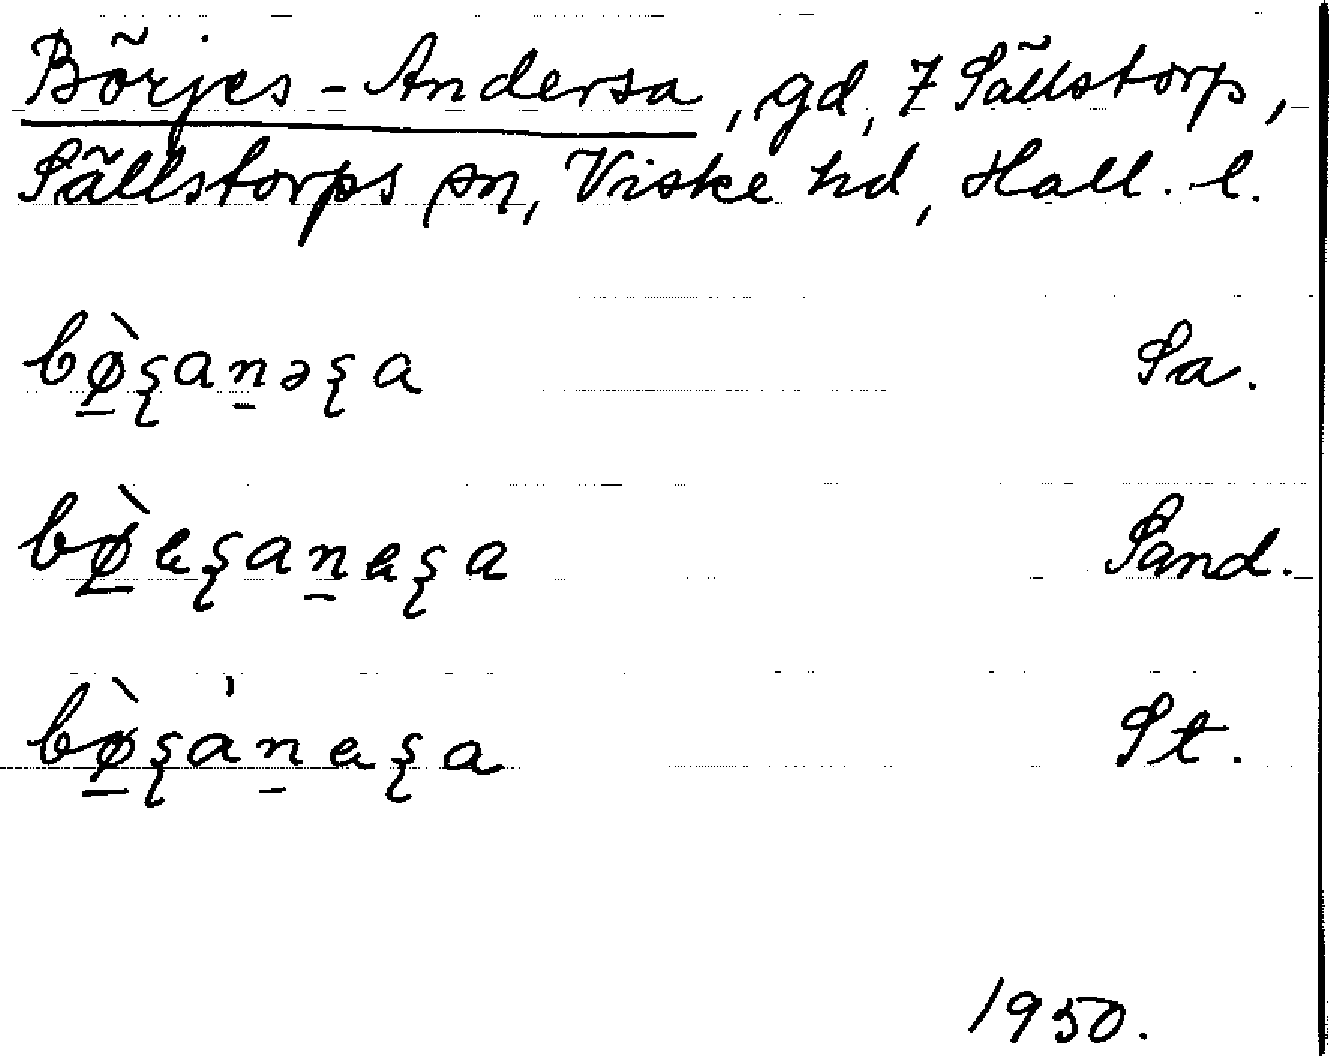 Börjes-Andersa, gd, 7 Sällstorp,
Sällstorps sn, Viske hd, Hall. l.
bø̱̀ʂan̠əʂa Sa.
bø̱̀ɐʂan̠ɐʂa Sand.
bø̱̀ʂa̍n̠ɐʂa St.
1950.